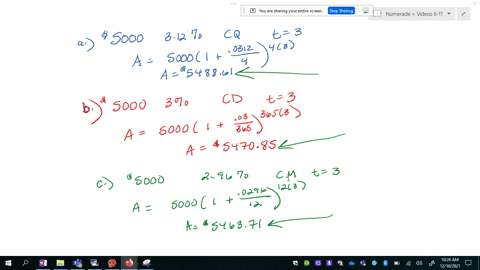 You are sharing your entire screen. Stop Sharing Hide
Numerade + Videos 6-11
a.) $5000 3.12% CQ t=3
A = 5000(1 + .0312/4)^4(3)
A = $5488.61
b.) $5000 3% CD t=3
A = 5000(1 + .03/365)^365(3)
A = $5470.85
c.) $5000 2.96% CM t=3
A = 5000(1 + .0296/12)^12(3)
A = $5463.71
10:26 AM
12/10/2021